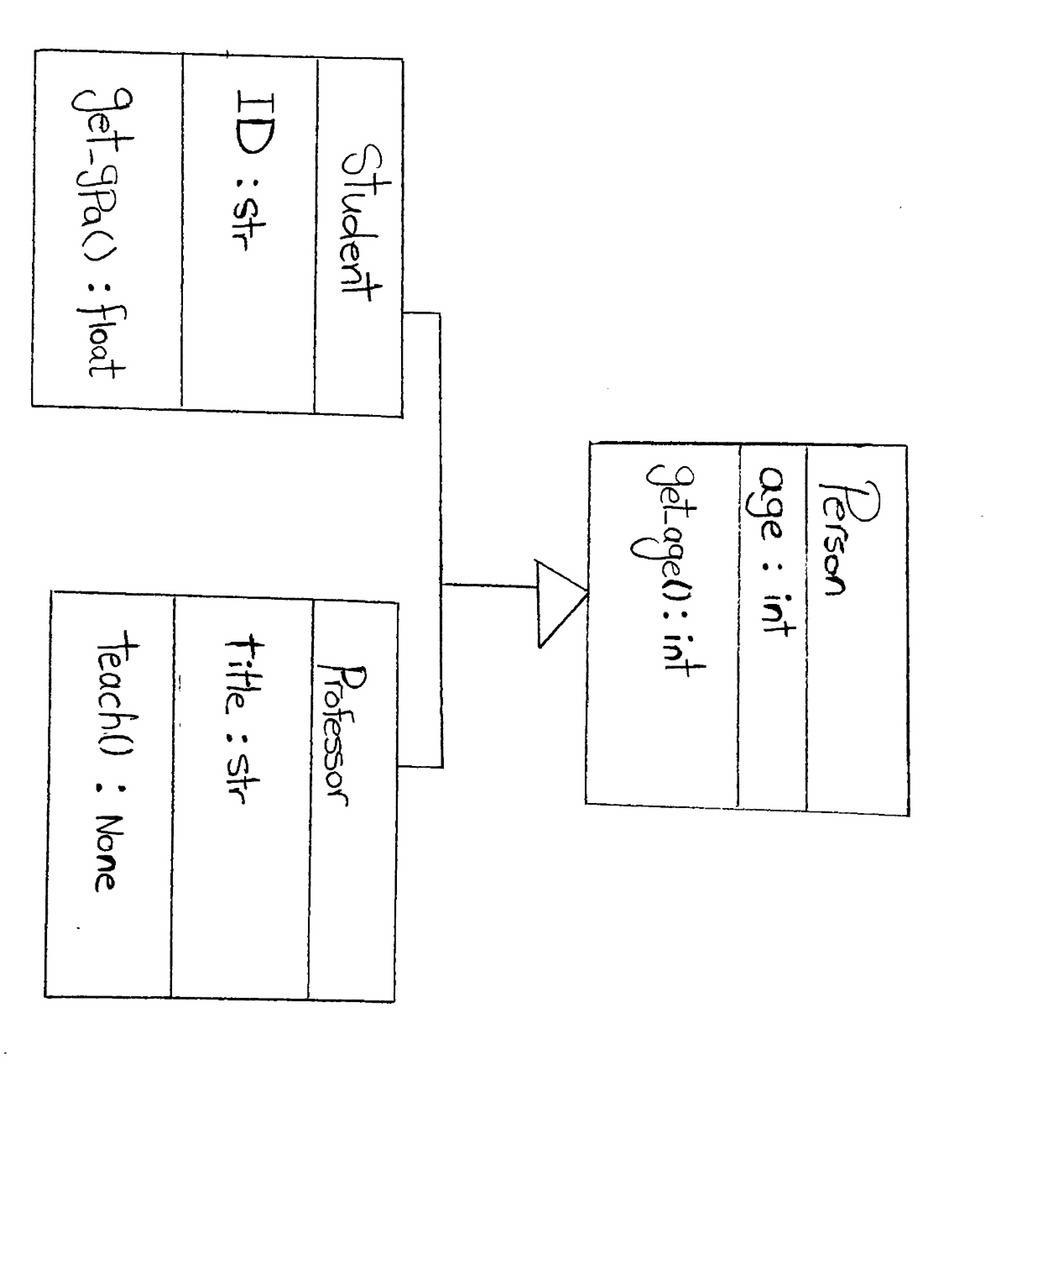 Person
age : int
get_age() : int
Student
ID : str
get_gpa() : float
Professor
title : str
teach() : None